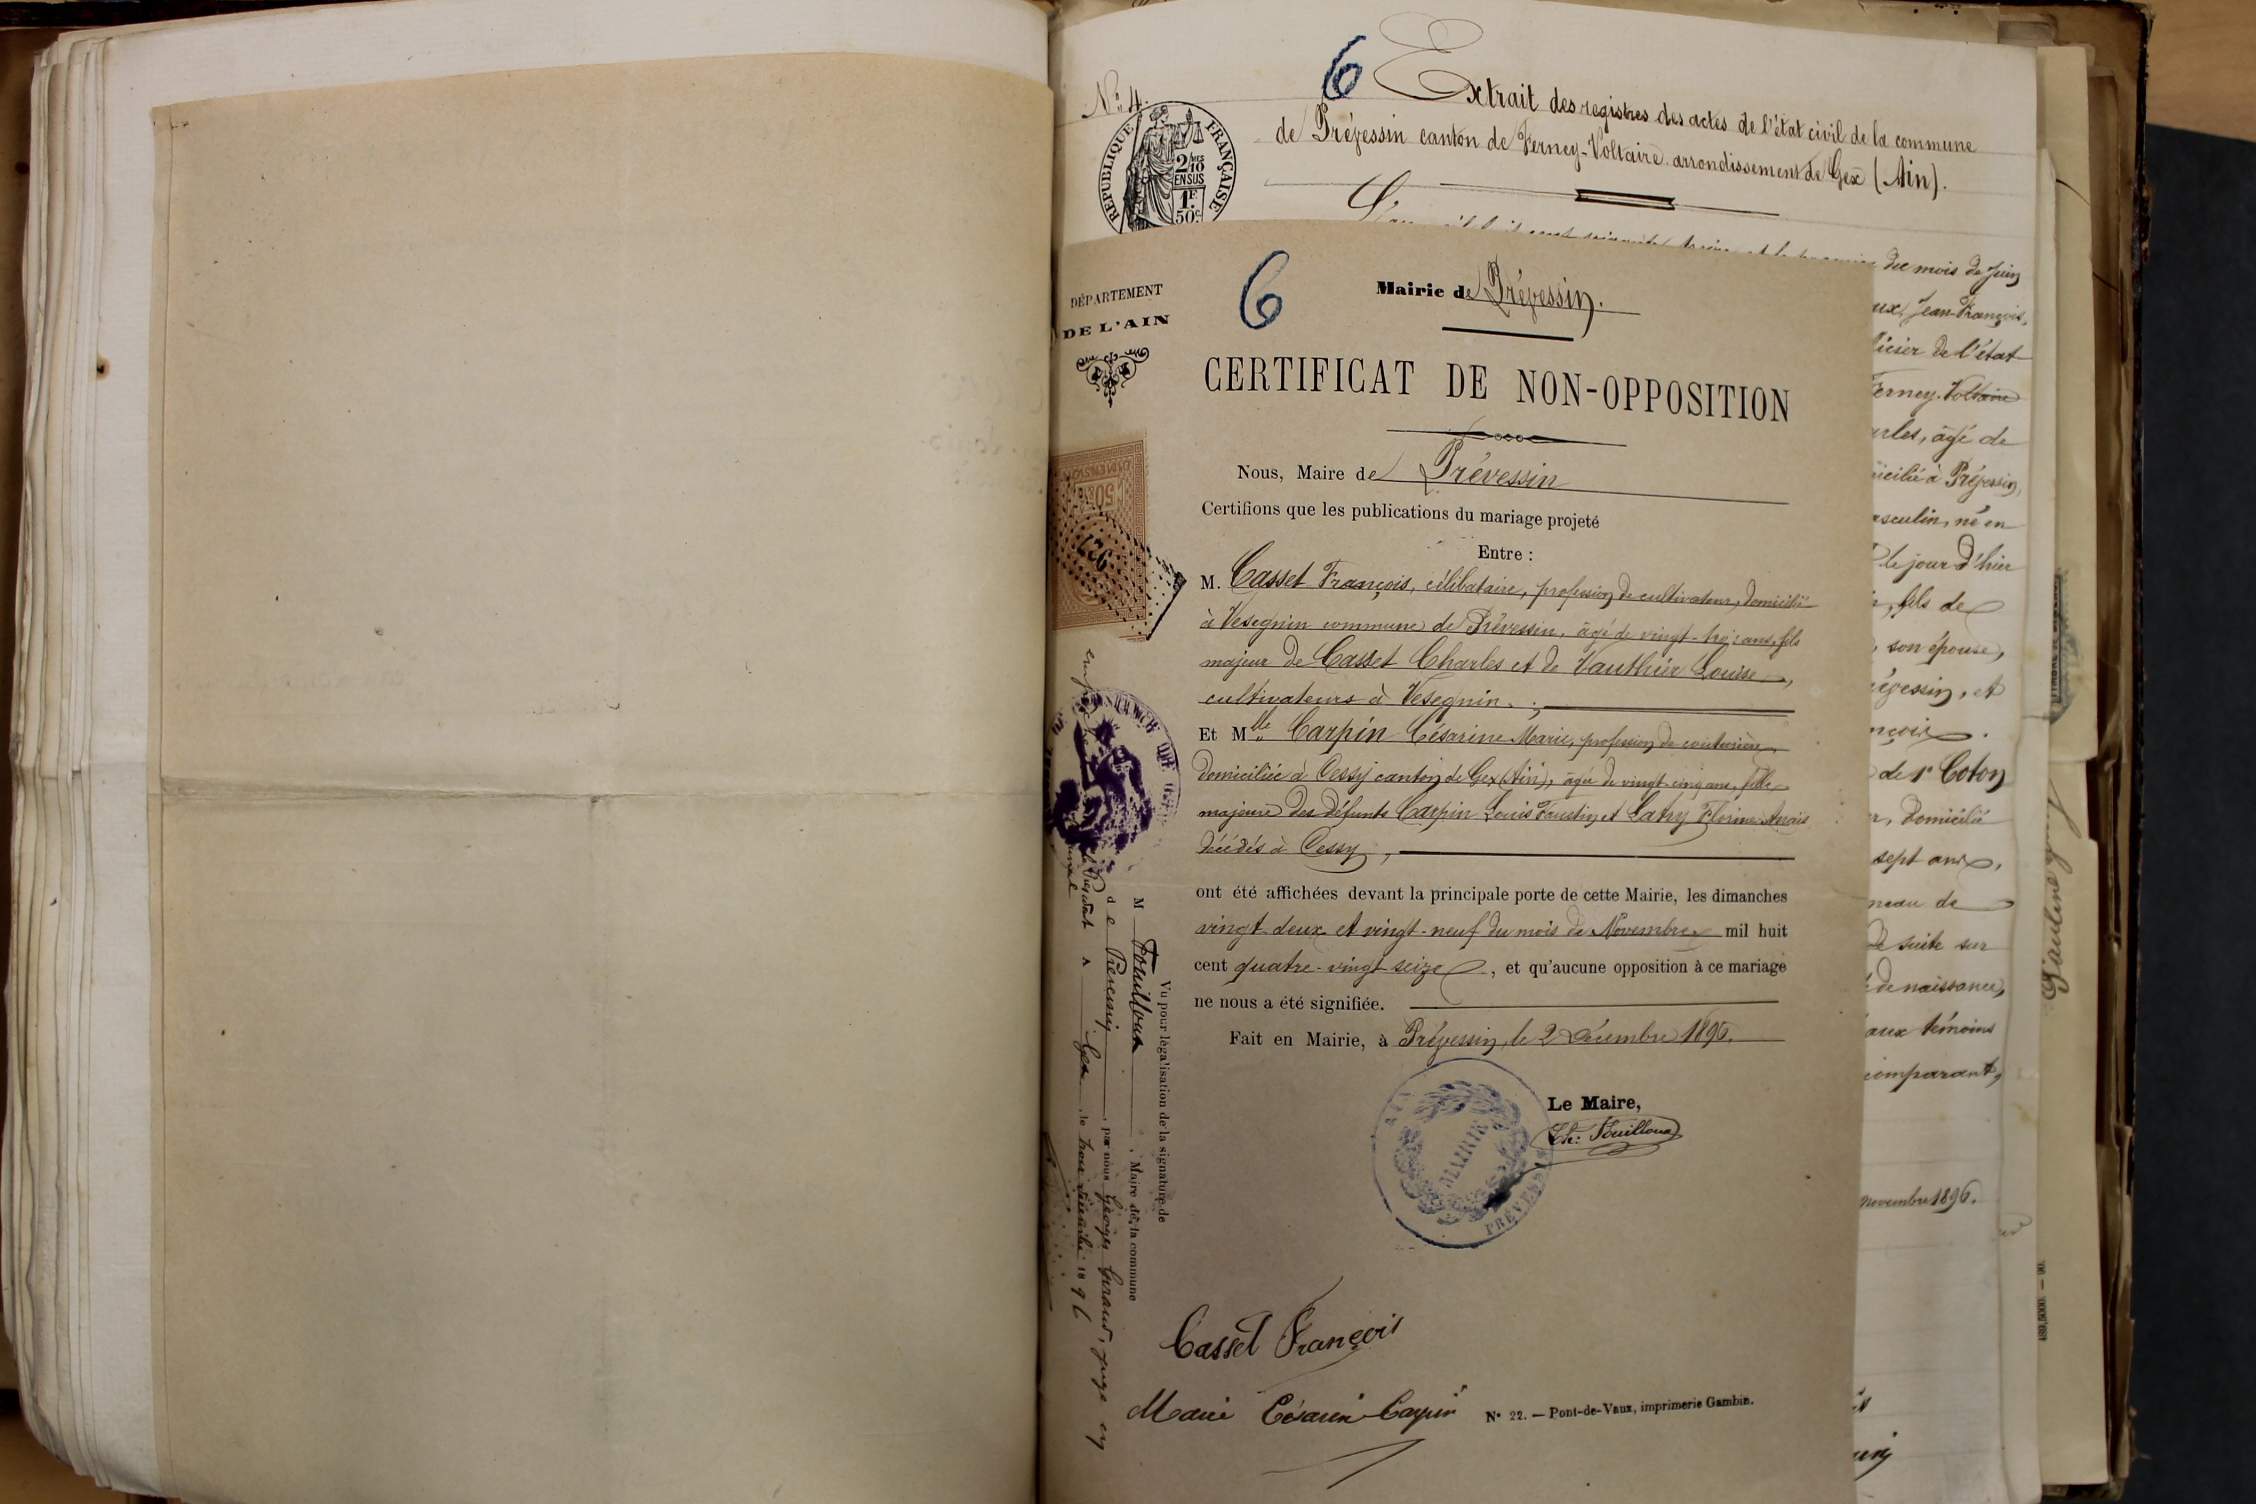 N° 4.
6
Extrait des registres des actes de l'état civil de la commune
de Prévessin canton de Ferney-Voltaire arrondissement de Gex (Ain).
REPUBLIQUE FRANÇAISE
2/10 EN SUS
1F.50c
du mois de Juin
aux, Jean-François,
ficier de l'état
Ferney-Voltaire
arles, âgé de
icilié à Prévessin,
asculin, né en
le jour d'hier
fils de
son épouse,
évessin, et
nçois.
de 1° Coton
domicilié
sept ans,
neau de
de suite sur
de naissance,
aux témoins
comparant,
novembre 1896.
6
DÉPARTEMENT
DE L'AIN
Mairie de Prévessin.
CERTIFICAT DE NON-OPPOSITION
Nous, Maire de Prévessin
Certifions que les publications du mariage projeté
Entre :
M. Casset François, célibataire, profession de cultivateur, domicilié
à Vesegnin commune de Prévessin, âgé de vingt-trois ans, fils
majeur de Casset Charles et de Vauthier Louise,
cultivateurs à Vesegnin.
Et Mlle Carpin Césarine Marie, profession de couturière,
domiciliée à Cessy canton de Gex (Ain), âgée de vingt-cinq ans, fille
majeure des défunts Carpin Louis Faustin et Latry Florine Anaïs
décédés à Cessy,
ont été affichées devant la principale porte de cette Mairie, les dimanches
vingt-deux et vingt-neuf du mois de Novembre mil huit
cent quatre-vingt seize, et qu'aucune opposition à ce mariage
ne nous a été signifiée.
Fait en Mairie, à Prévessin, le 2 Décembre 1896.
Le Maire,
Ch: Fouilloux
MAIRIE
AIN
PRÉVESSIN
Casset François
Marie Césarin Carpin
N° 22. — Pont-de-Vaux, imprimerie Gambin.
Vu pour légalisation de la signature de
M Fouilloux, Maire de la commune
de Prévessin, par nous Georges Guraud, juge en
Gex, le trois décembre 1896